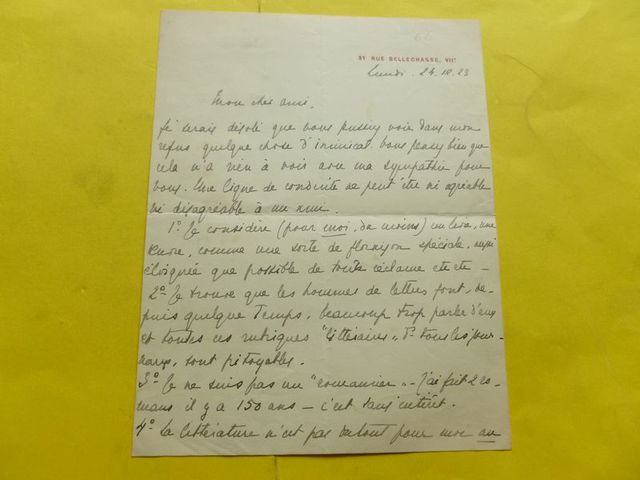 31 RUE BELLECHASSE, VIIe
Lundi. 24.12.23
Mon cher ami,
Je serais désolé que vous puissiez voir dans mon
refus quelque chose d'inimical. Vous pensez bien que
cela n'a rien à voir avec ma sympathie pour
vous. Une ligne de conduite ne peut être ni agréable
ni désagréable à un ami.
1º. Je considère (pour moi, du moins) un livre, une
œuvre, comme une sorte de floraison spéciale, aussi
éloignée que possible de toute réclame etc etc -
2º. Je trouve que les hommes de lettres font, de-
puis quelque temps, beaucoup trop parler d'eux
et toutes ces rubriques "littéraires", ds tous les jour-
naux, sont pitoyables.
3º Je ne suis pas un "romancier". - J'ai fait 2 ro-
mans il y a 150 ans - c'est sans intérêt.
4º La littérature n'est pas du tout pour moi un